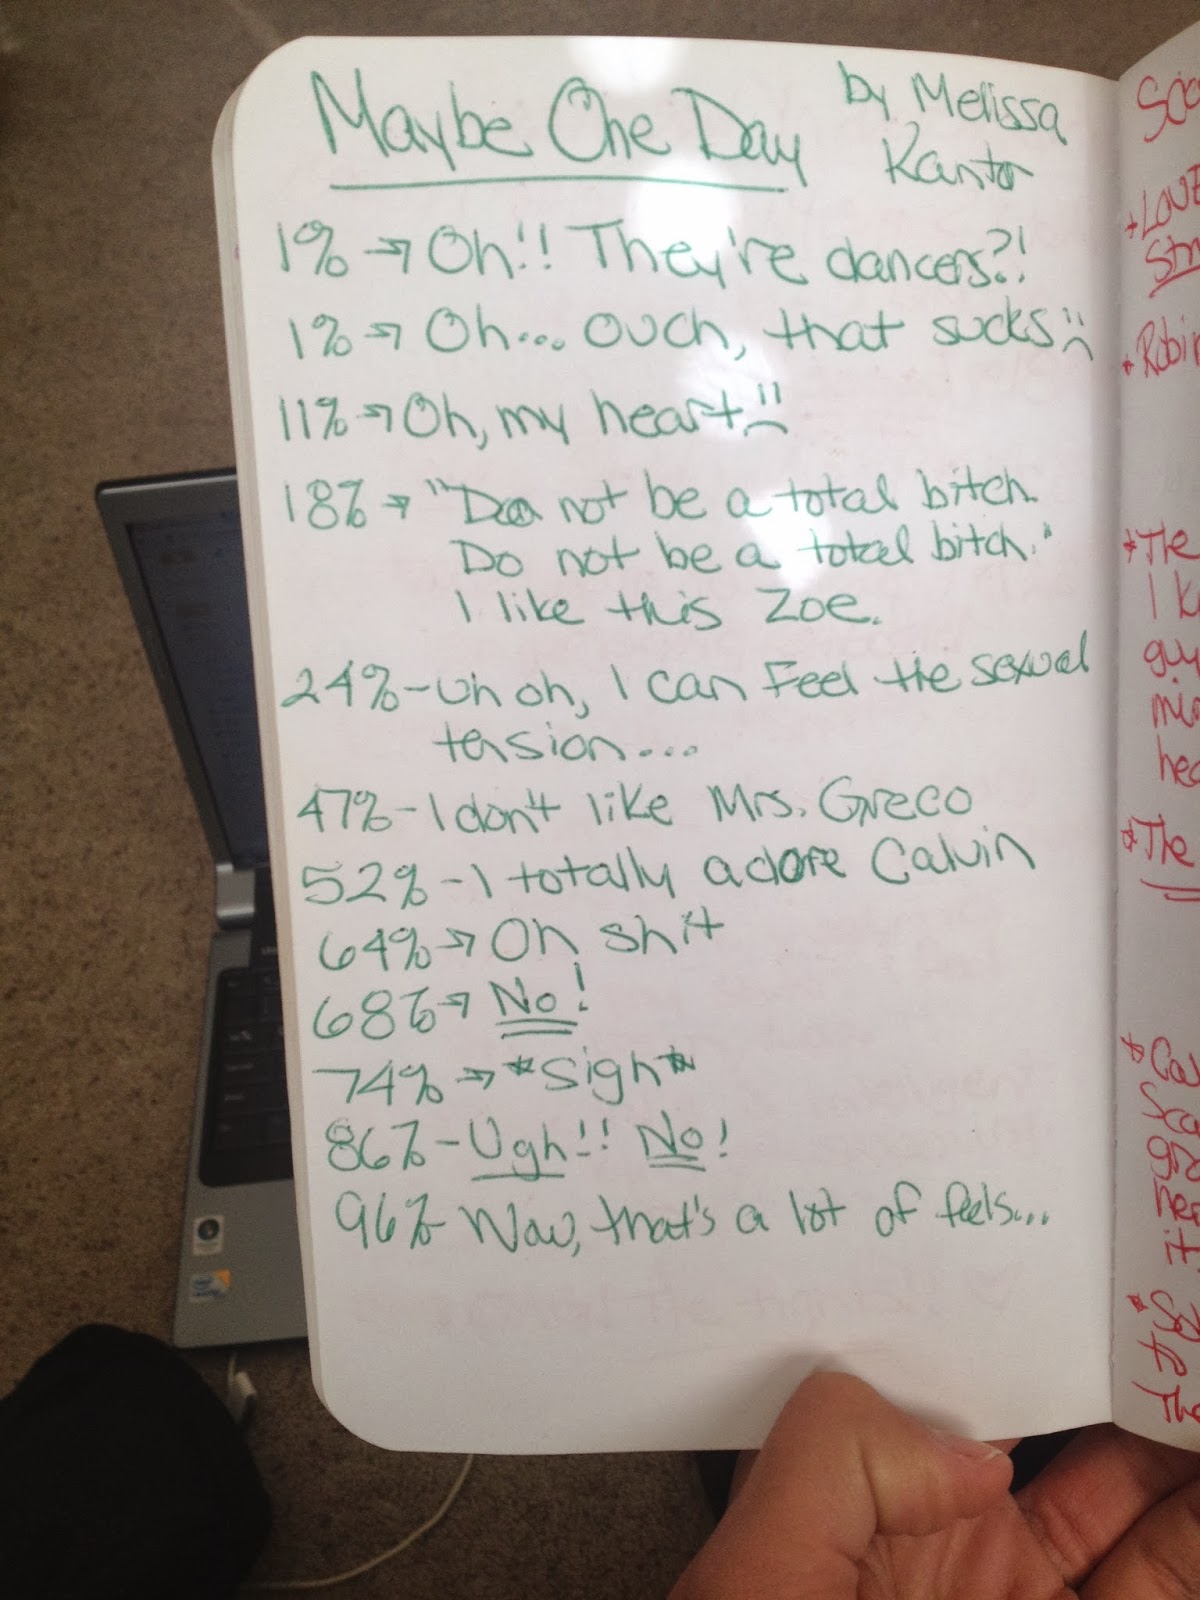 Maybe One Day
by Melissa
Kantor
1% → Oh!! They're dancers?!
1% → Oh... ouch, that sucks :(
11% → Oh, my heart :(
18% → "Do not be a total bitch.
Do not be a total bitch."
I like this Zoe.
24% - Uh oh, I can Feel the sexual
tension...
47% - I don't like Mrs. Greco
52% - I totally adore Calvin
64% → Oh shit
68% → No!
74% → *sigh*
86% - Ugh!! No!
96% Wow, that's a lot of feels...
*The
*The